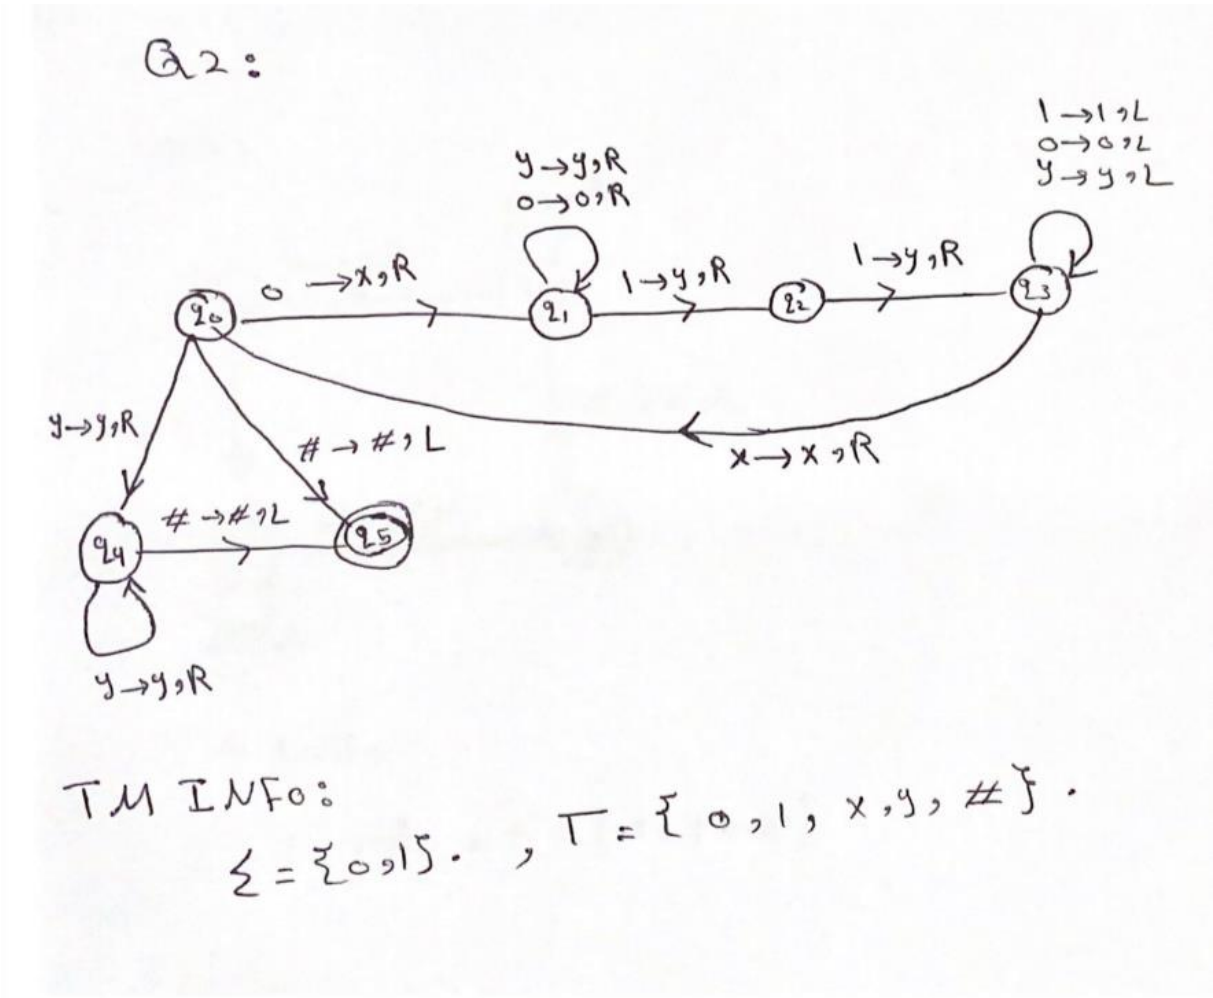 Q2:
1→1,L
0→0,L
y→y,L
y→y,R
0→0,R
0→x,R
1→y,R
1→y,R
q0
q1
q2
q3
y→y,R
#→#,L
x→x,R
#→#,L
q4
q5
y→y,R
TM INFO:
Σ={0,1}. , Γ={0,1,x,y,#}.